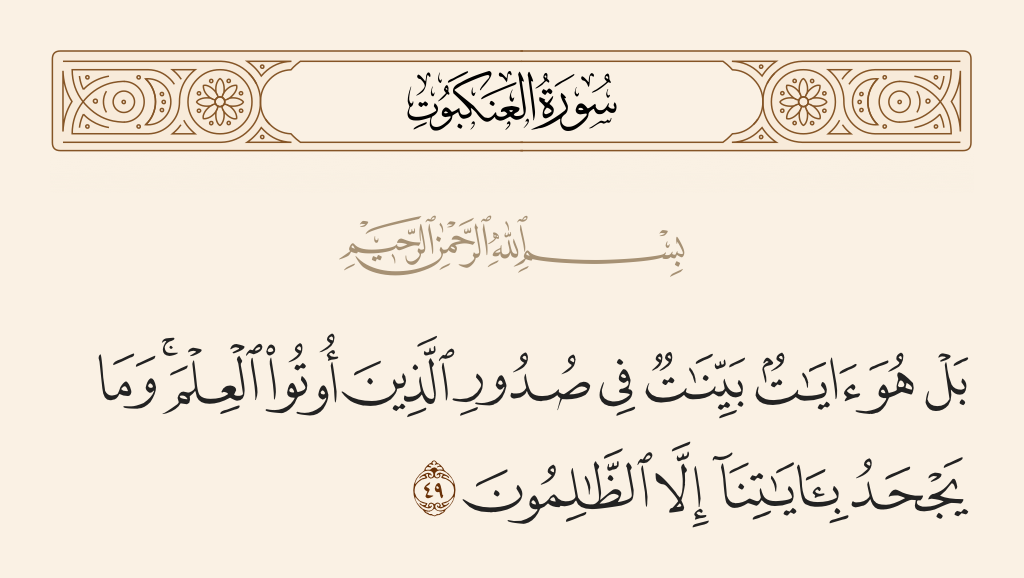 سُورَةُ الْعَنكَبُوتِ
بِسْمِ ٱللَّهِ ٱلرَّحْمَٰنِ ٱلرَّحِيمِ
بَلْ هُوَ ءَايَٰتٌۢ بَيِّنَٰتٌ فِى صُدُورِ ٱلَّذِينَ أُوتُوا۟ ٱلْعِلْمَ ۚ وَمَا
يَجْحَدُ بِـَٔايَٰتِنَآ إِلَّا ٱلظَّٰلِمُونَ ٤٩